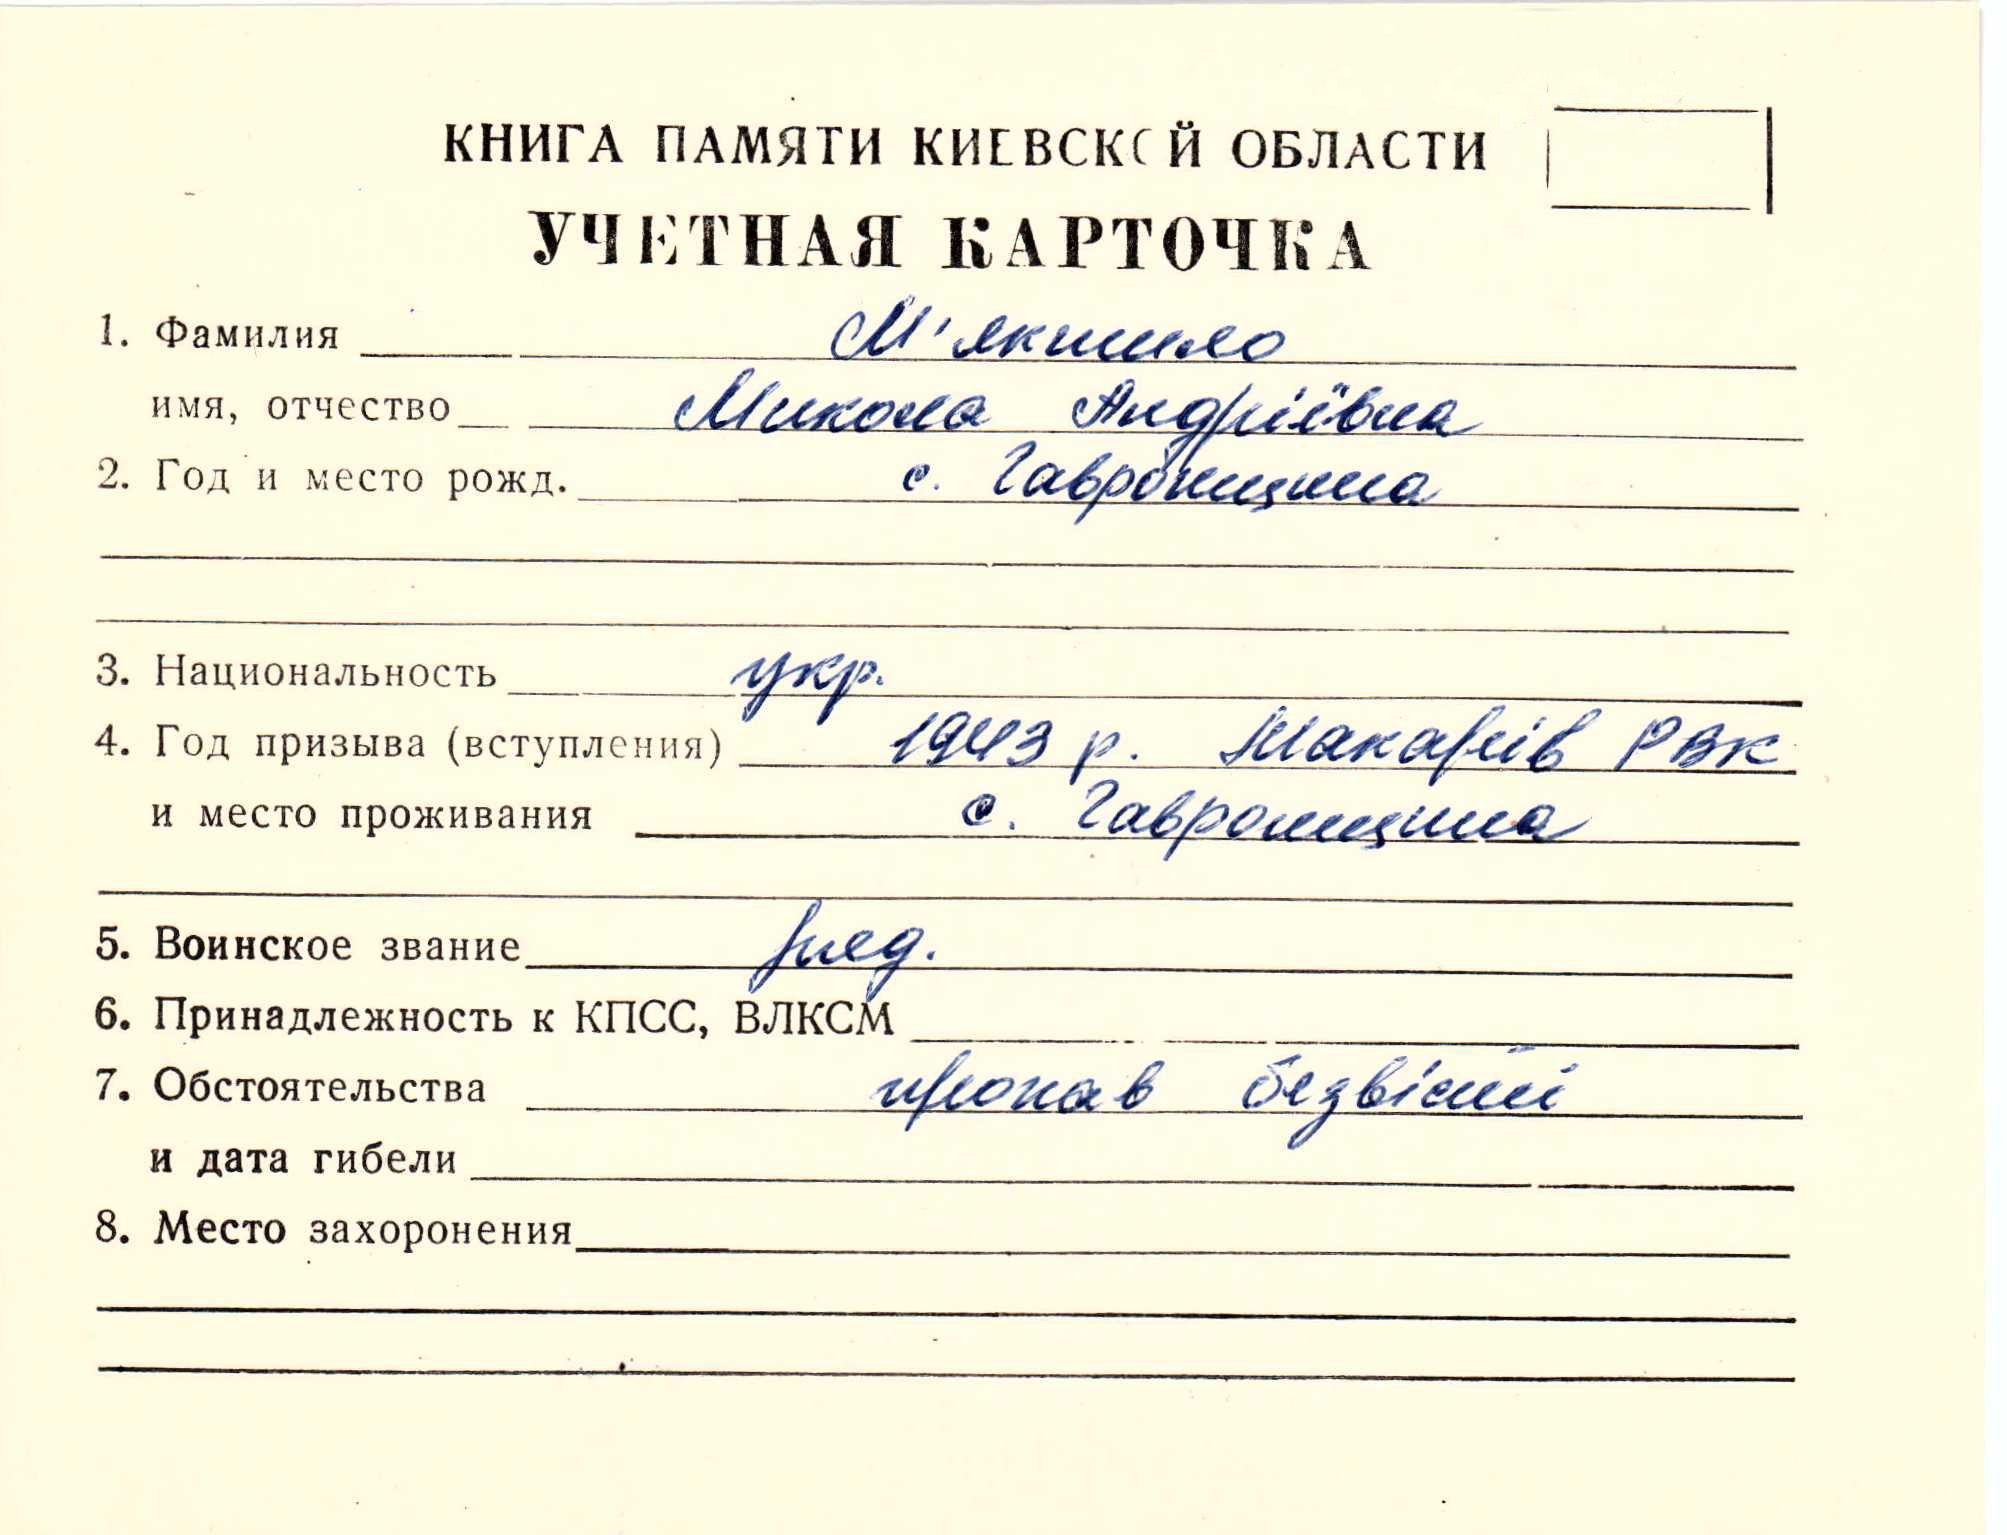 КНИГА ПАМЯТИ КИЕВСКОЙ ОБЛАСТИ
УЧЕТНАЯ КАРТОЧКА
1. Фамилия М'якшило
имя, отчество Микола Андріївна
2. Год и место рожд. с. Гавронщина
3. Национальность укр.
4. Год призыва (вступления) 1943 р. Макарів РВК
и место проживания с. Гавронщина
5. Воинское звание ряд.
6. Принадлежность к КПСС, ВЛКСМ
7. Обстоятельства пропав безвісті
и дата гибели
8. Место захоронения